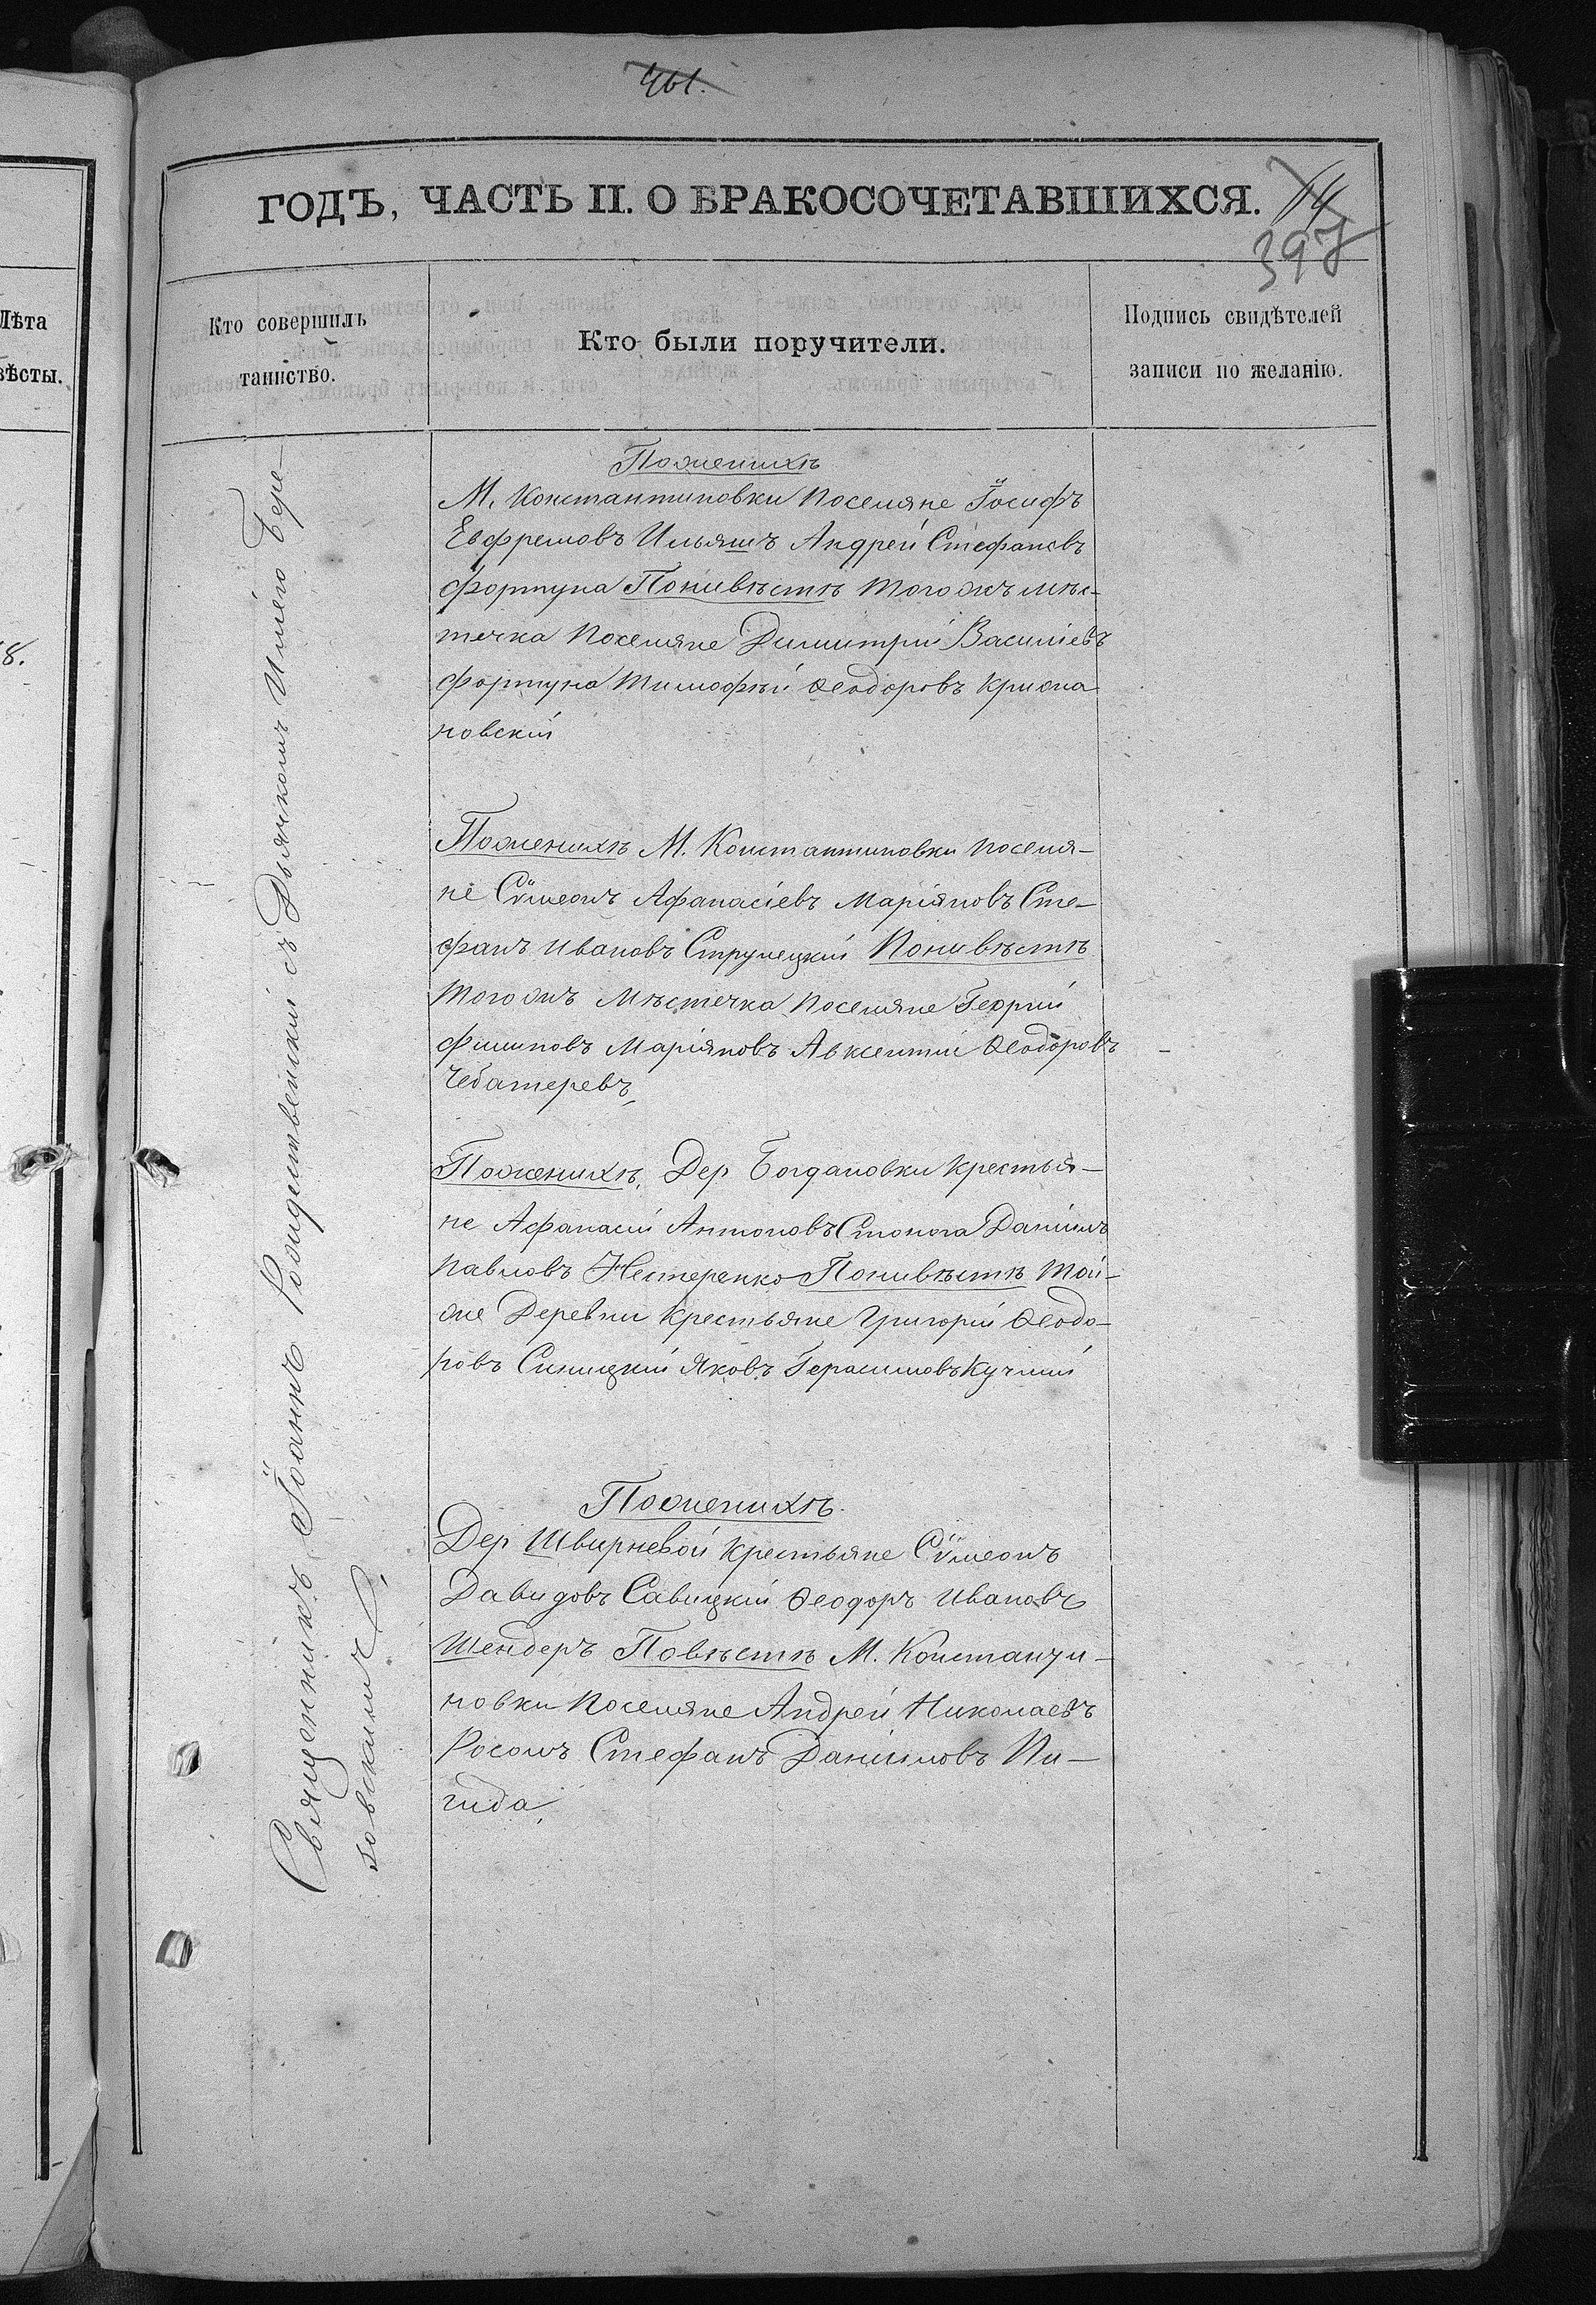 461.
ГОДЪ, ЧАСТЬ II. О БРАКОСОЧЕТАВШИХСЯ.
397
Лѣта
вѣсты.
8.
Кто совершилъ
таинство.
Кто были поручители.
Подпись свидѣтелей
записи по желанію.
Священникъ Іоаннъ Рождественскій съ Дьячкомъ Иліею Бере-
зовскимъ
Поженихѣ
М. Константиновки поселяне Іосифъ
Евфремовъ Ильяшъ Андрей Стефановъ
Фортуна Поневѣстѣ тогожъ мѣс-
течка поселяне Димитрій Василіевъ
Фортуна Тимофѣй Ѳеодоровъ Крижа
новскій
Поженихѣ М. Константиновки поселя-
не Сѵмеонъ Афанасіевъ Маріяновъ Сте-
фанъ Ивановъ Струлецкій Поневѣстѣ
Тогожъ мѣстечка поселяне Георгій
Филиповъ Маріяновъ Авксентій Ѳеодоровъ
Чебатеревъ
Поженихѣ. Дер Богдановки крестья-
не Афанасій Антоновъ Стонога Даніилъ
Павловъ Нестеренко Поневѣстѣ той-
же Деревни крестьяне Григорій Ѳеодо-
ровъ Синицкій Яковъ Герасимовъ Кучмій
Поженихѣ.
Дер Швирневой крестьяне Сѵмеонъ
Давидовъ Савицкій Ѳеодоръ Ивановъ
Шендеръ Повѣстѣ М. Константи-
новки поселяне Андрей Николаевъ
Росомъ Стефанъ Даніиловъ Пи-
гида